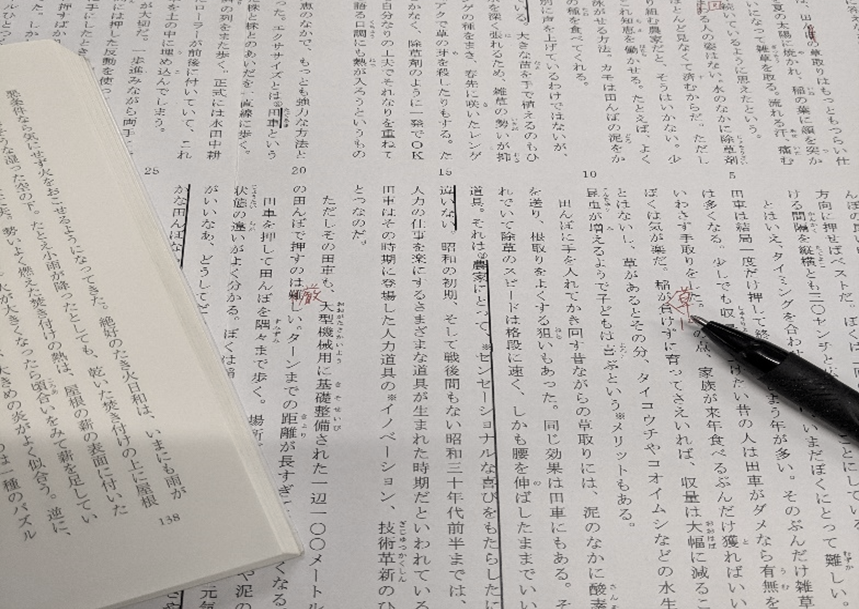 は、田の草取りはもっともつらい仕
夏の太陽に焼かれ、稲の葉に顔を突か
いになって雑草を取る。流れる汗。痛む
続ているように思えたという。
る人の姿はない。水のなかに除草剤
ほとんど見なくて済むからだ。ただし
り組む農家だと、そうはいかない。少
これ知恵を働かせる。たとえば、よく
泳がせる方法。カモは田んぼの泥をか
種を食べてくれる。
別に声を上げているわけではないが、
いる。大きな苗を手で植えるのもひ
を深く張れるため、雑草の勢いが抑
ゲの種をまき、春先に咲いたレンゲ
アクで草の芽を殺したりもする。た
かなく、除草剤のように一発でOK
自分なりの工夫でそれなりを重ねて
語る口調にも熱が入ろうというもの
恵のなかで、もっとも強力な方法と
った。エクササイズとは①田車という
た株と株とのあいだを一直線に歩く。
の列をまた歩く。正式には水田中耕
ローラーが前後に付いていて、これ
を土の中に埋め込んでしまう。
が大切だ。一歩進みながら両手に
には押した反動を使っ
5
10
15
20
25
方向に押せばベスト
ける間隔を縦横とも三〇センチと
とはいえ、タイミングを合わ
田車は結局一度だけ押して終
は多くなる。少しでも収
いわさず手取りをした。
ぼくは気が楽だ。稲が負けずに育ってさえいれば、収量は大幅に減るこ
とはないし、草があるとその分、タイコウチやコオイムシなどの水生
昆虫が増えるようで子どもは喜ぶという※メリットもある。
田んぼに手を入れてかき回す昔ながらの草取りには、泥のなかに酸素
を送り、根取りをよくする狙いもあった。同じ効果は田車にもある。そ
れでいて除草のスピードは格段に速く、しかも腰を伸ばしたままでいい
道具。それは②農家にとって、※センセーショナルな喜びをもたらしたに
違いない。昭和の初期、そして戦後間もない昭和三十年代前半までは、
人力の仕事を楽にするさまざまな道具が生まれた時期だといわれている
田車はその時期に登場した人力道具の※イノベーション、技術革新のひ
とつなのだ。
ただしその田車も、大型機械用に基礎整備された一辺一〇〇メートル
の田んぼで押すのは難しい。ターンまでの距離が長すぎ
田車を押して田んぼを隅々まで歩く。場所
状態の違いがよく分かる。ぼくは
がいいなあ、どうしてど
かな田んぼな
いまだぼくにとって難しい。
よう年が多い。そのぶんだけ雑草
けたい昔の人は田車がダメなら有無を
の点、家族が来年食べるぶんだけ獲ればいい
草
厳
悪条件なら気にせず火をおこせるようになってきた。絶好のたき火日和は、いまにも雨が
そうな湿った空の下。たとえ小雨が降ったとしても、乾いた焚き付けの上に屋根
勢いよく燃えた焚き付けの熱は、屋根の薪の表面に付いた
火が大きくなったら頃合いをみて薪を足してい
大きめの炎がよく似合う。逆に、
は一種のパズル
138